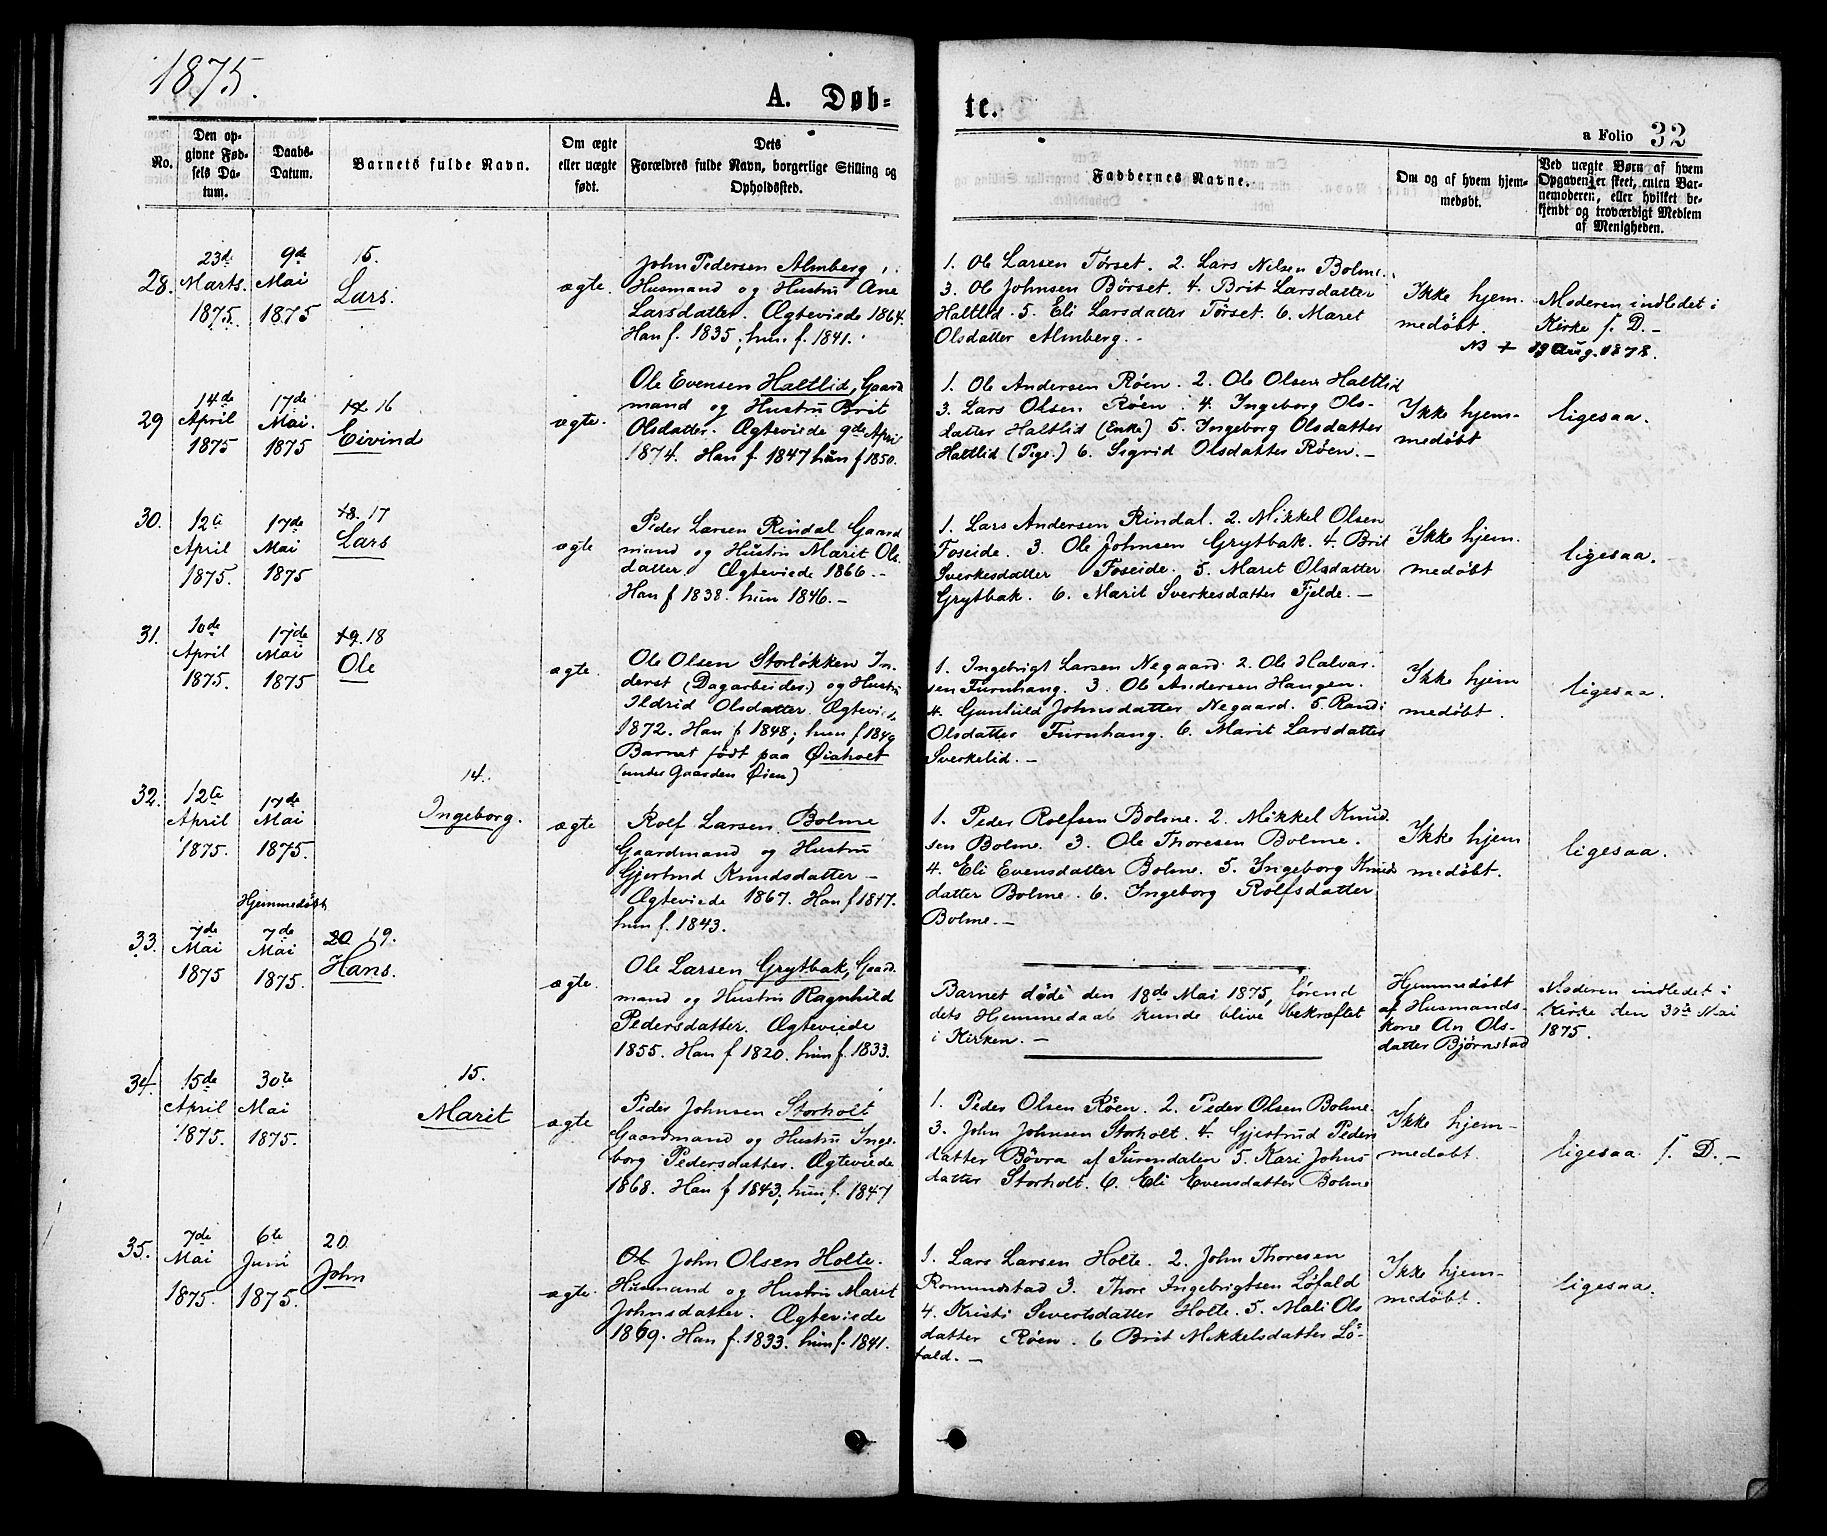 1875.
A. Døb=
te.
a Folio 32
No.
Den op-
givne Fød-
sels Da-
tum.
Daabs-
Datum.
Barnets fulde Navn.
Om ægte
eller uægte
født.
Dets
Forældres fulde Navn, borgerlige Stilling og
Opholdssted.
Faddernes Navne.
Om og af hvem hjem-
medøbt.
Ved uægte Børn af hvem
Opgaven er skeet, enten Bar-
nemoderen, eller hvilket be-
kjendt og troværdigt Medlem
af Menigheden.
28.
23de
Marts.
1875.
9de
Mai
1875
15.
Lars.
ægte.
John Pedersen Almberg,
Husmand og Hustru Ane
Larsdatter. Ægteviede 1864.
Han f. 1835, hun f. 1841.
1. Ole Larsen Tørset. 2. Lars Nilsen Bolme.
3. Ole Johnsen Børset. 4. Brit Larsdatter
Haltlid. 5. Eli Larsdatter Tørset. 6. Maret
Olsdatter Almberg.
Ikke hjem-
medøbt.
Moderen indledet i
Kirke s. D. –
NB + 19 Aug. 1878.
29
14de
April
1875
17de
Mai.
1875
17 16
Eivind
ægte.
Ole Evensen Haltlid, Gaard
mand og Hustru Brit
Olsdatter. Ægteviede 9de April
1874. Han f. 1847 hun f 1850.
1. Ole Andersen Røen. 2. Ole Olsen Haltlid
3. Lars Olsen Røen. 4. Ingeborg Ols-
datter Haltlid (Enke) 5. Ingeborg Olsdatter
Haltlid (Pige.) 6. Sigrid Olsdatter Røen. –
Ikke hjem-
medøbt
ligesaa.
30.
12te
April
1875.
17de
Mai
1875
18. 17
Lars
ægte
Peder Larsen Rindal Gaard
mand og Hustru Marit Ole
datter. Ægteviede 1866. –
Han f 1838. hun 1846. –
1. Lars Andersen Rindal. 2. Mikkel Olsen
Foseide. 3. Ole Johnsen Grytbak. 4. Brit
Sverkesdatter Foseide. 5. Maret Olsdatter
Grytbak. 6. Marit Sverkesdatter Fjelde. –
Ikke hjem.
medøbt
ligesaa.
31.
10de
April
1875.
17de
Mai
1875
19. 18
Ole
ægte.
Ole Olsen Storløkken In-
derst (Dagarbeider) og Hustru
Ildrid Olsdatter. Ægtevied.
1872. Han f 1848; hun f 1849
Barnet født paa Øiaholt
(under Gaarden Øien)
1. Ingebrigt Larsen Negaard. 2. Ole Halvar.
sen Furuhaug. 3. Ole Andersen Haugen.
4. Gunhild Johnsdatter Negaard. 5. Randi
Olsdatter Furuhaug. 6. Marit Larsdatter
Sverkelid. –
Ikke hjem
medøbt.
ligesaa.
32.
12te
April
1875.
17de
Mai
1875.
14.
Ingeborg.
ægte
Rolf Larsen Bolme
Gaardmand og Hustru
Gjertrud Knudsdatter –
Ægteviede 1867. Han f 1847.
hun f. 1843.
1. Peder Rolfsen Bolme. 2. Mikkel Knud
sen Bolme. 3. Ole Thoresen Bolme.
4. Eli Evensdatter Bolme. 5. Ingeborg Knuds
datter Bolme. 6. Ingeborg Rolfsdatter
Bolme. –
Ikke hjem
medøbt.
ligesaa.
33.
7de
Mai
1875
Hjemmedøbt
7de
Mai
1875.
20 19.
Hans.
ægte.
Ole Larsen Grytbak, Gaard.
mand og Hustru Ragnhild
Pedersdatter. Ægteviede
1855. Han f 1820. hun f. 1833.
Barnet døde den 18de Mai 1875, førend
dets Hjemmedaab kunde blive bekræftet
i Kirken. –
Hjemmedøbt
af Husmands-
kone An Ols-
datter Bjørnstad
Moderen indledet i
Kirke den 30te Mai
1875.
34.
15de
April
1875.
30te
Mai
1875.
15.
Marit
ægte
Peder Johnsen Storholt
Gaardmand og Hustru Inge-
borg Pedersdatter. Ægteviede
1868. Han f 1843, hun f. 1847
1. Peder Olsen Røen. 2. Peder Olsen Bolme.
3. John Johnsen Storholt. 4. Gjertrud Peders
datter Bøvra af Surendalen 5. Kari Johns
datter Storholt. 6. Eli Evensdatter Bolme
Ikke hjem-
medøbt.
ligesaa s. D. –
35.
7de
Mai
1875.
6te
Juni
1875.
20.
John
ægte.
Ol John Olsen Holte.
Husmand og Hustru Marit
Johnsdatter. Ægteviede
1869. Han f. 1833. hun f. 1841.
1. Lars Larsen Holte. 2. John Thoresen
Romundstad 3. Thore Ingebrigtsen Løfald
4. Kristi Sivertsdatter Holte. 5. Mali Ols
datter Røen. 6 Brit Mikkelsdatter Lø-
fald. –
Ikke hjem-
medøbt.
ligesaa.